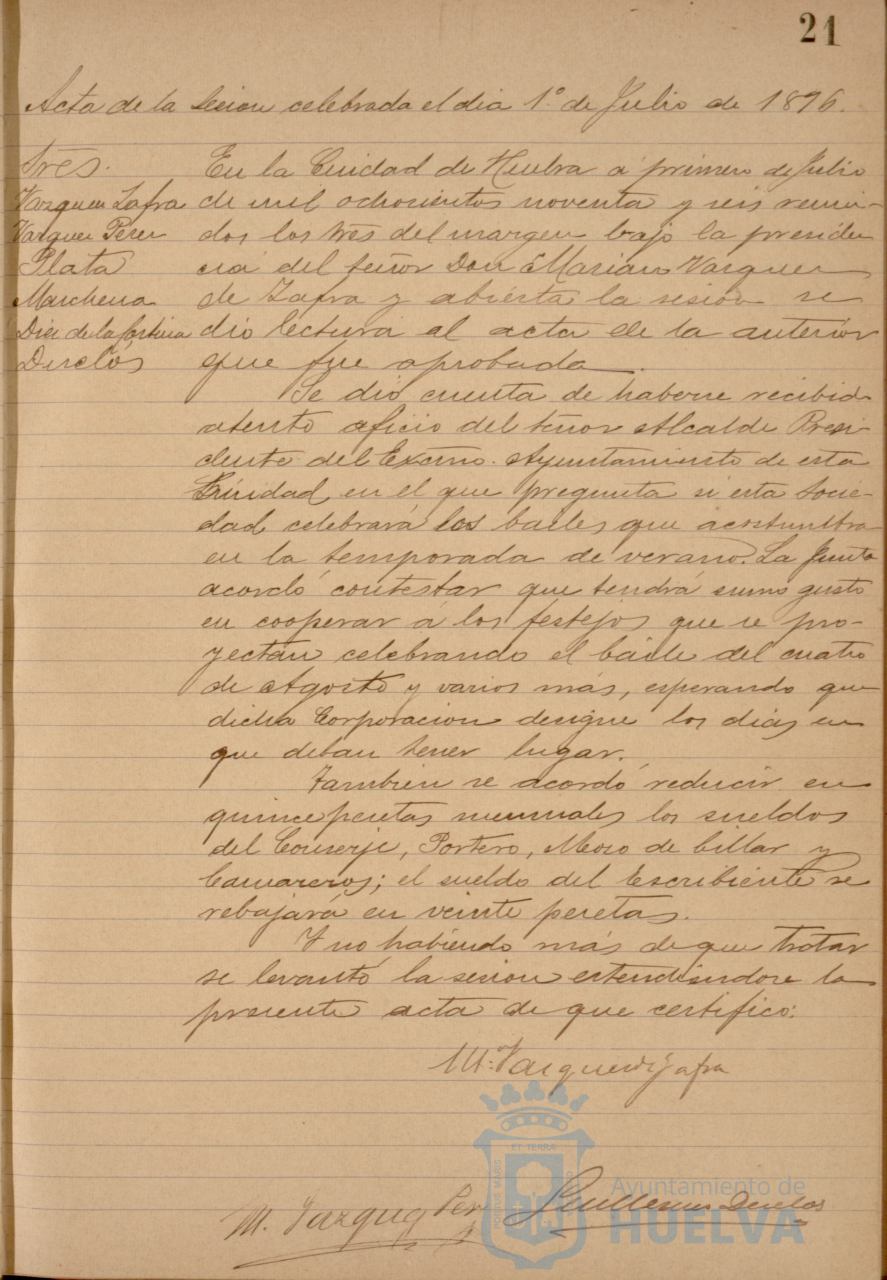 21
Acta de la sesion celebrada el dia 1º de Julio de 1896.
Sres.
Vazquez Zafra
Vazquez Perez
Plata
Marchena
Diez de la Cortina
Duclós
En la Ciudad de Huelva á primero de Julio
de mil ochocientos noventa y seis reuni-
dos los Sres del margen bajo la presiden
cia del Señor Don Mariano Vazquez
de Zafra y abierta la sesion se
dio lectura al acta de la anterior
que fue aprobada.
Se dió cuenta de haberse recibido
atento oficio del Señor Alcalde Presi-
dente del Excmo. Ayuntamiento de esta
Ciudad en el que pregunta si esta Socie-
dad celebrará los bailes que acostumbra
en la temporada de verano. La Junta
acordó contestar que tendrá sumo gusto
en cooperar á los festejos que se pro-
yectan celebrando el baile del cuatro
de Agosto y varios más, esperando que
dicha Corporacion designe los dias en
que deban tener lugar.
Tambien se acordó reducir en
quince pesetas mensuales los sueldos
del Conserje, Portero, Mozo de billar y
Camareros; el sueldo del Escribiente se
rebajará en veinte pesetas.
Y no habiendo más de que tratar
se levantó la sesion estendiendose la
presente acta de que certifico:
M. Vazquez de Zafra
M. Vazquez Perez
Guillermo Duclos
ET TERRA
PORTUS MARIS
Ayuntamiento de
HUELVA